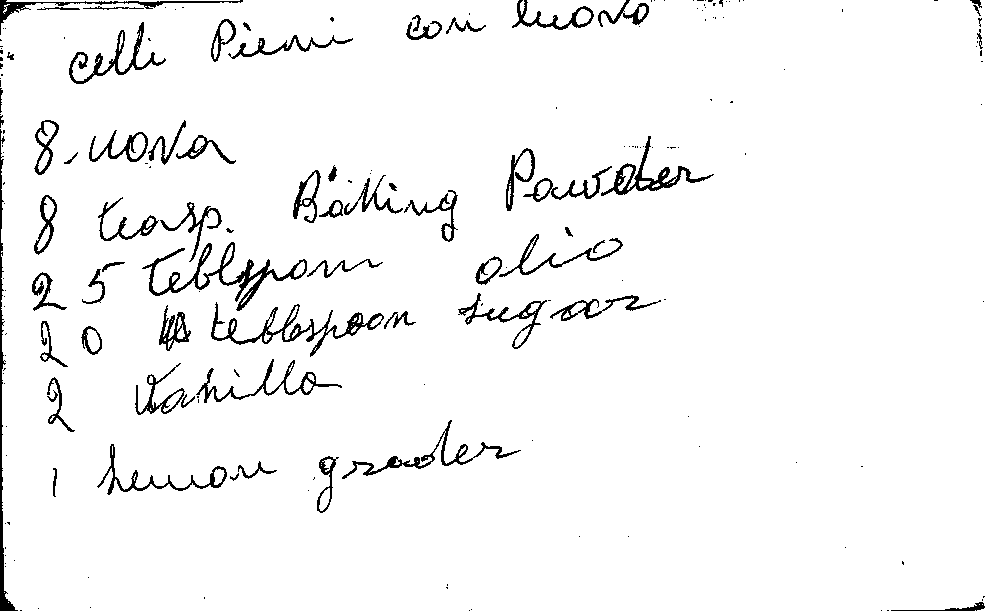 celli Pieni con luovo
8. uova
8 teasp. Baking Pawder
25 teblspom olio
20 teblespoon sugar
2 Vanilla
1 lemon grader